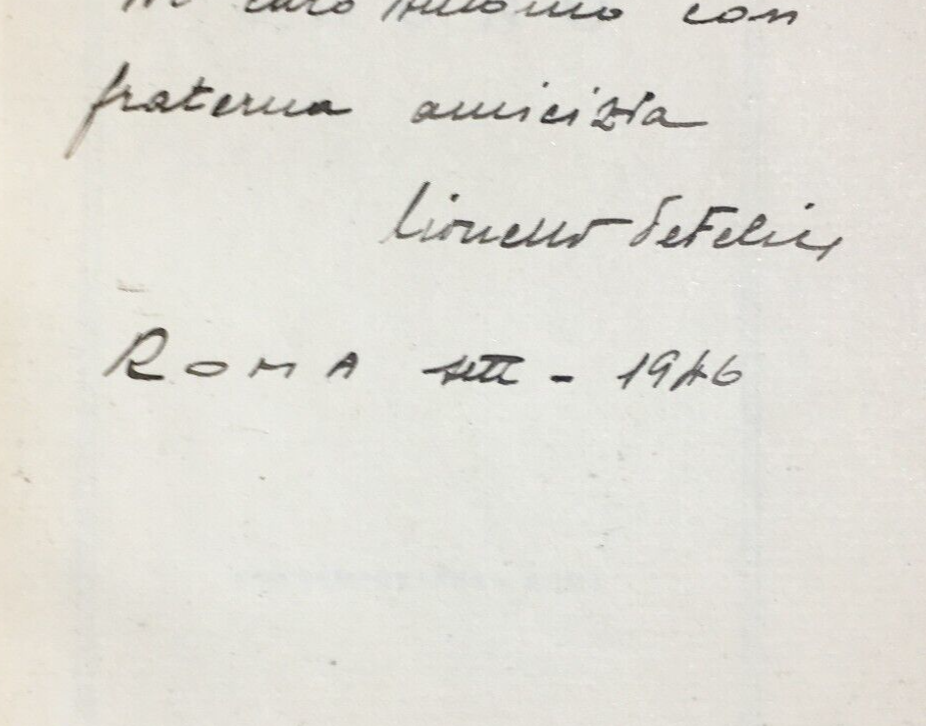 Al caro Antonio con
fraterna amicizia
Lionello De Felice
ROMA sett - 1946